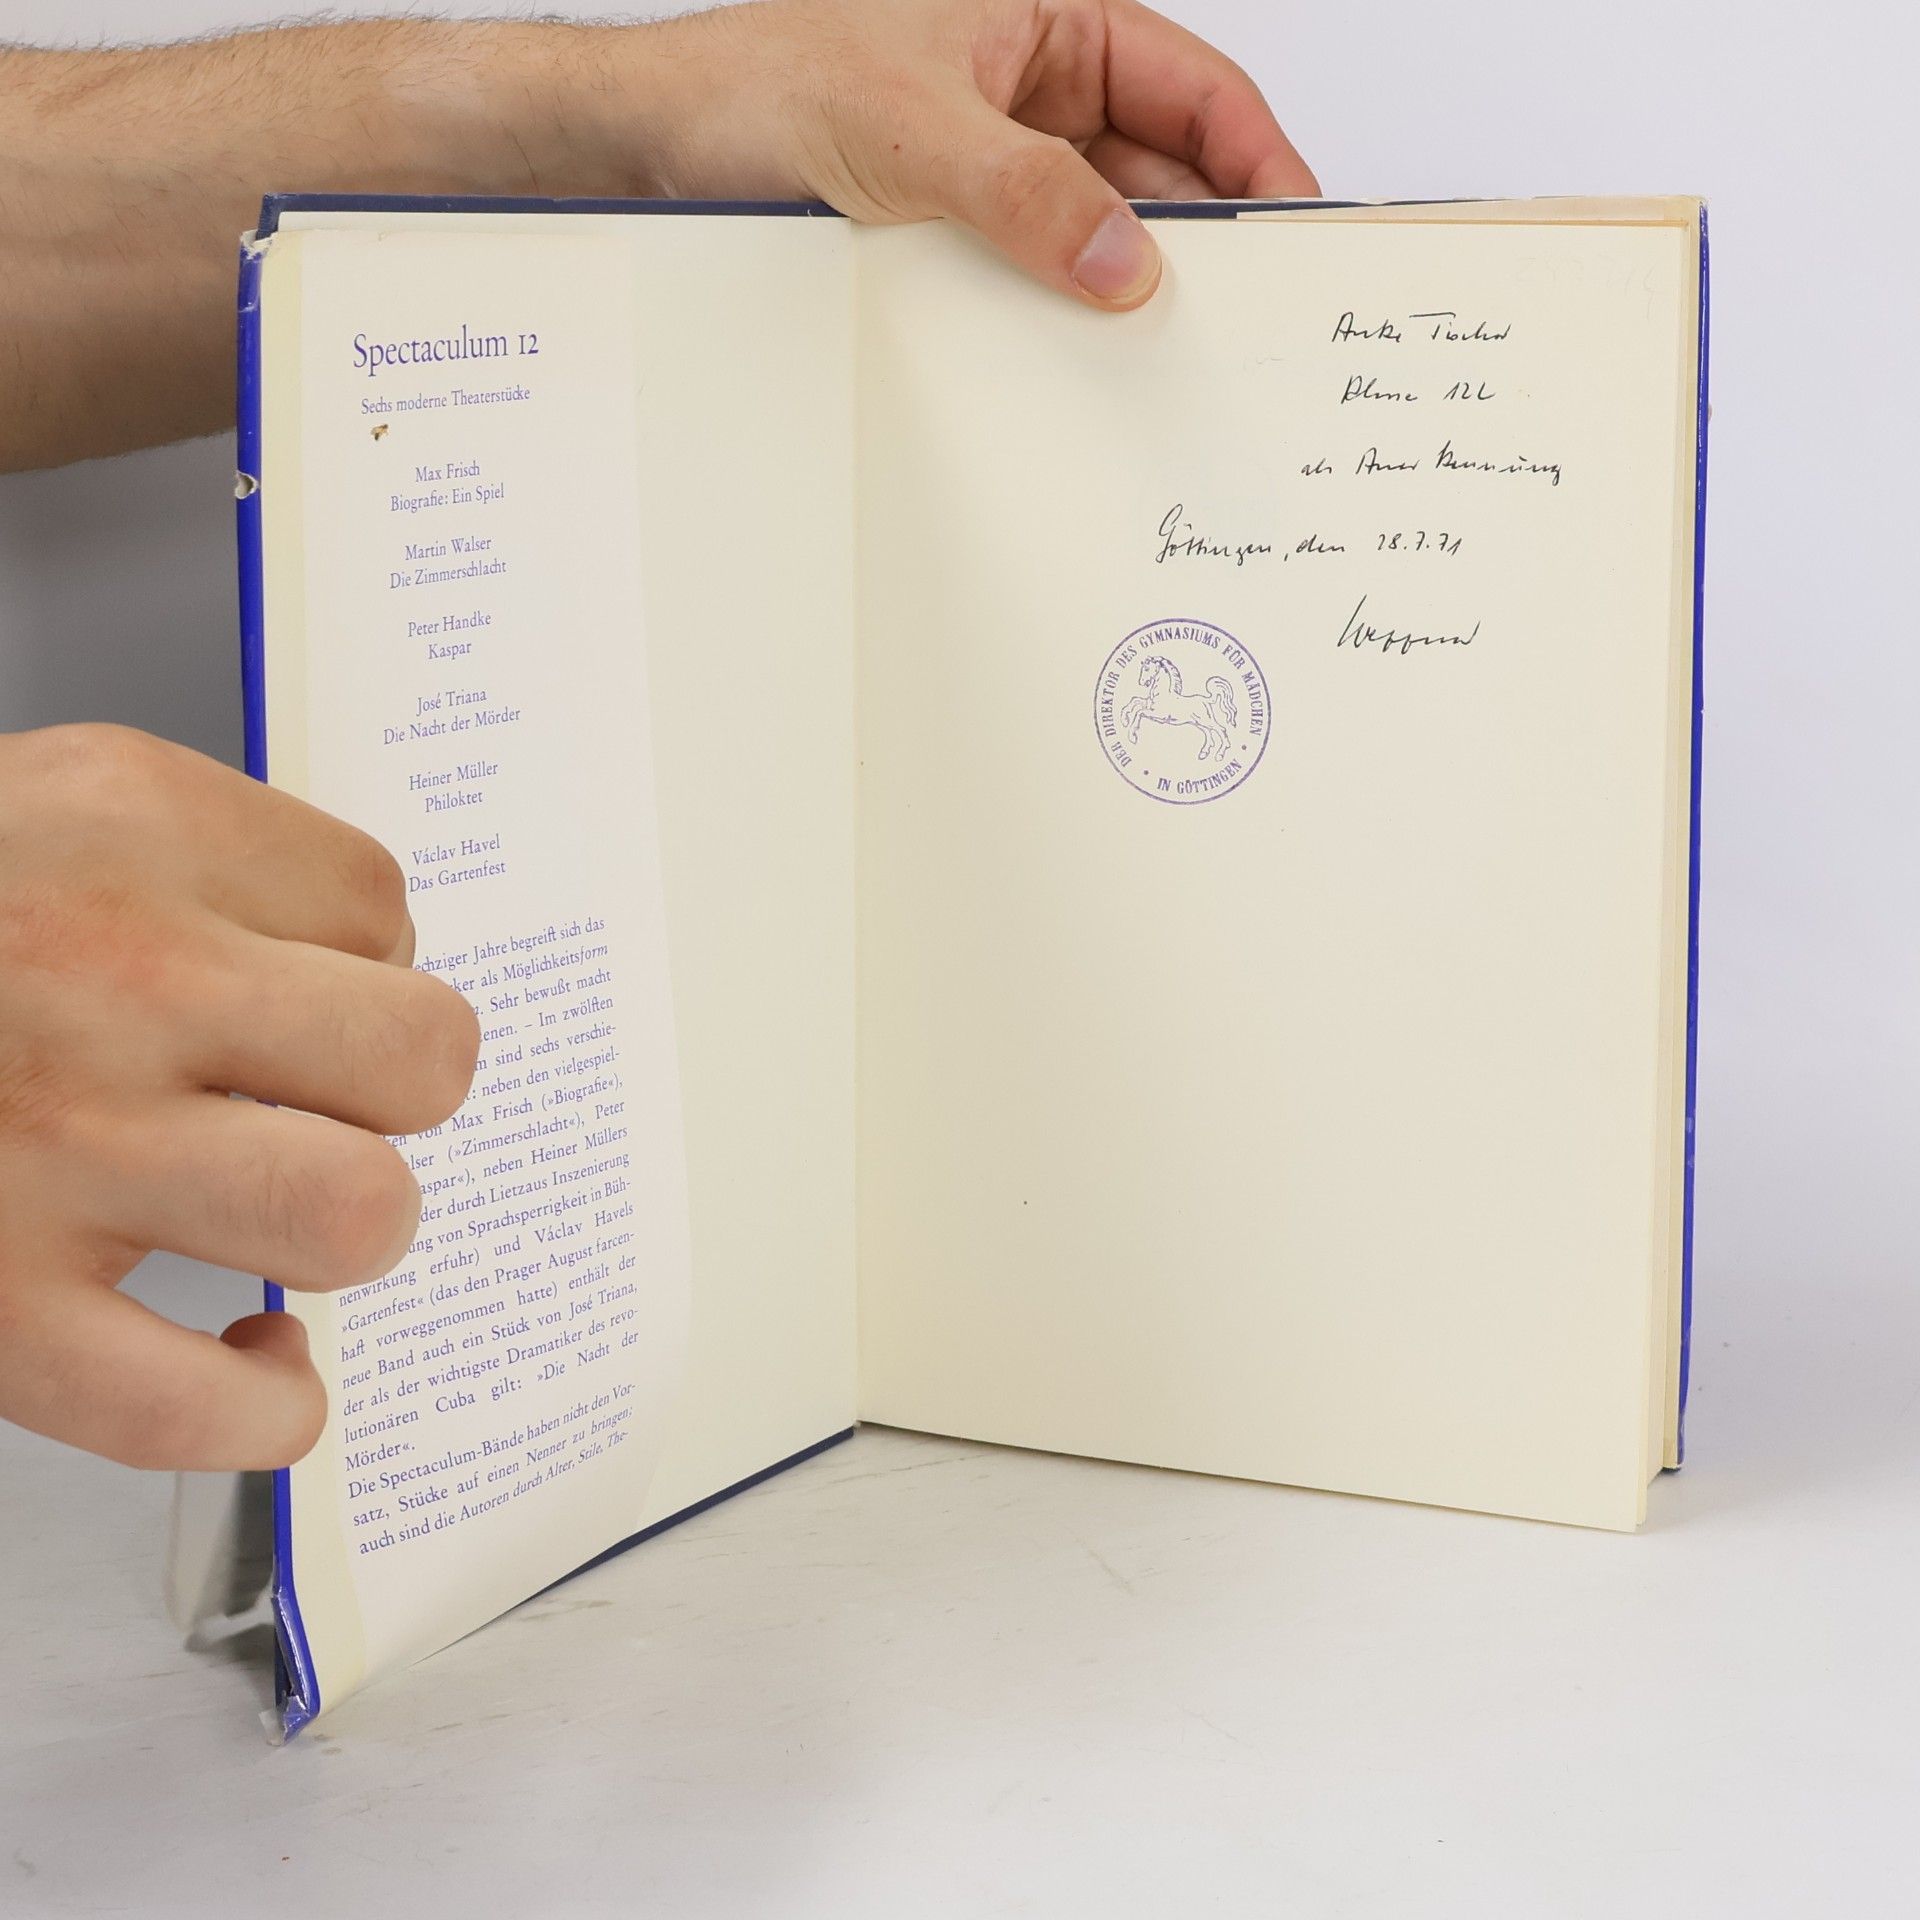 Spectaculum 12
Sechs moderne Theaterstücke
Max Frisch
Biografie: Ein Spiel
Martin Walser
Die Zimmerschlacht
Peter Handke
Kaspar
José Triana
Die Nacht der Mörder
Heiner Müller
Philoktet
Václav Havel
Das Gartenfest
echziger Jahre begreift sich das
ker als Möglichkeitsform
. Sehr bewußt macht
enen. – Im zwölften
m sind sechs verschie-
: neben den vielgespiel-
ken von Max Frisch (»Biografie«),
lser (»Zimmerschlacht«), Peter
aspar«), neben Heiner Müllers
der durch Lietzaus Inszenierung
ung von Sprachsperrigkeit in Büh-
nenwirkung erfuhr) und Václav Havels
»Gartenfest« (das den Prager August farcen-
haft vorweggenommen hatte) enthält der
neue Band auch ein Stück von José Triana,
der als der wichtigste Dramatiker des revo-
lutionären Cuba gilt: »Die Nacht der
Mörder«.
Die Spectaculum-Bände haben nicht den Vor-
satz, Stücke auf einen Nenner zu bringen;
auch sind die Autoren durch Alter, Stile, The-
Anke Tischer
Klasse 12L
als Anerkennung
Göttingen, den 28.7.71
DER DIREKTOR DES GYMNASIUMS FÜR MÄDCHEN
IN GÖTTINGEN